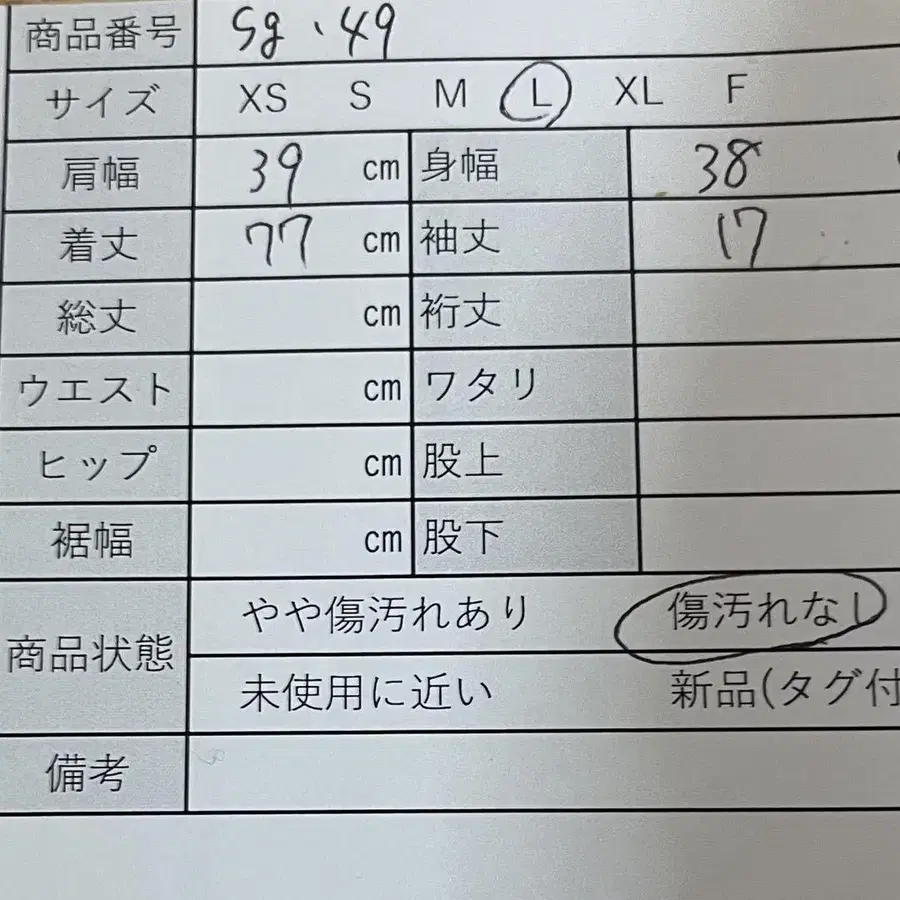 商品番号 Sg、49
サイズ XS S M L XL F
肩幅 39 cm 身幅 38
着丈 77 cm 袖丈 17
総丈 cm 裄丈
ウエスト cm ワタリ
ヒップ cm 股上
裾幅 cm 股下
商品状態 やや傷汚れあり 傷汚れなし
未使用に近い 新品(タグ付
備考